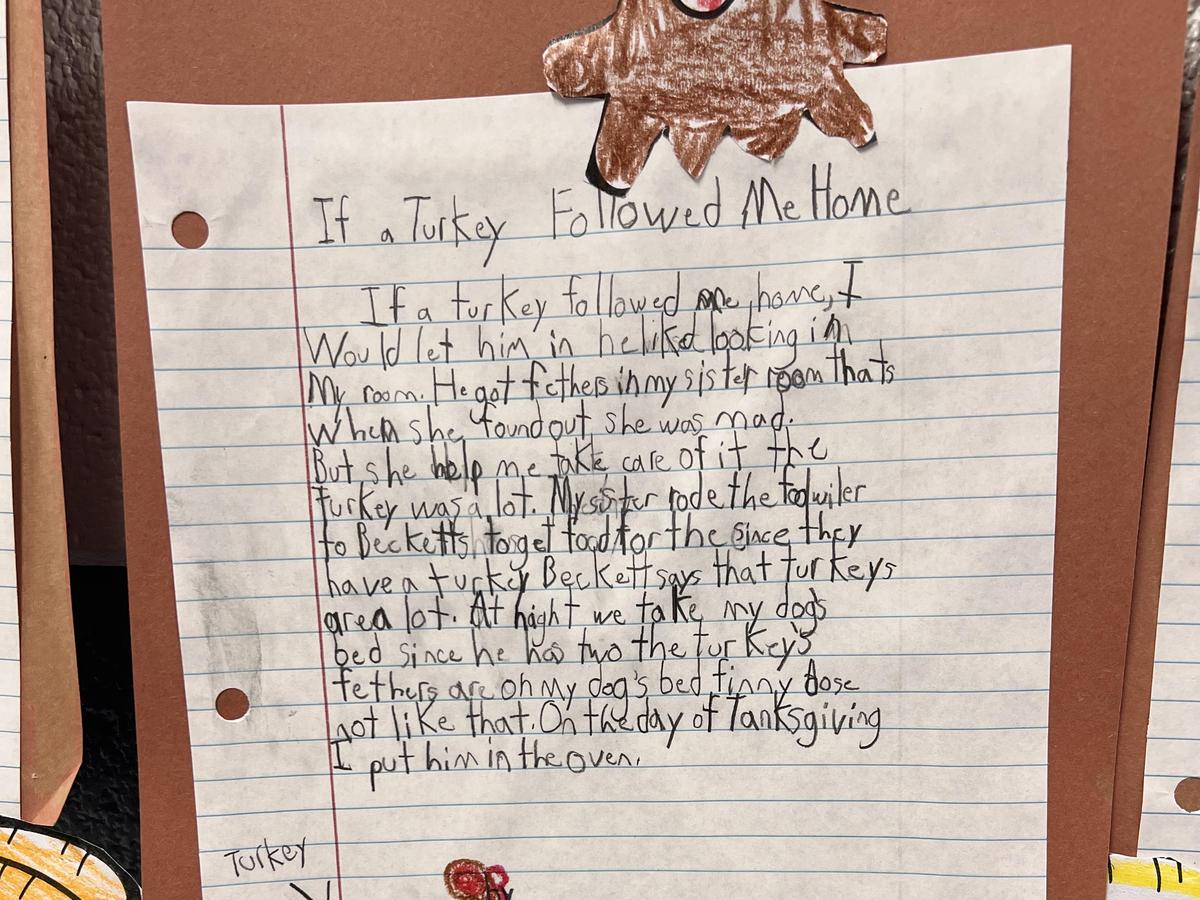 If a Turkey Followed Me Home
If a turkey followed me home, I
Would let him in he liked looking in
My room. He got fethers in my sister room thats
When she found out she was mad.
But she help me take care of it the
turkey was a lot. My sister rode the
to Becketts to get food for the since they
have a turkey Beckett says that turkeys
are a lot. At night we take my dogs
bed since he has two the turkey's
fethers are on my dog's bed finny dose
not like that. On the day of Tanksgiving
I put him in the oven.
Turkey
by